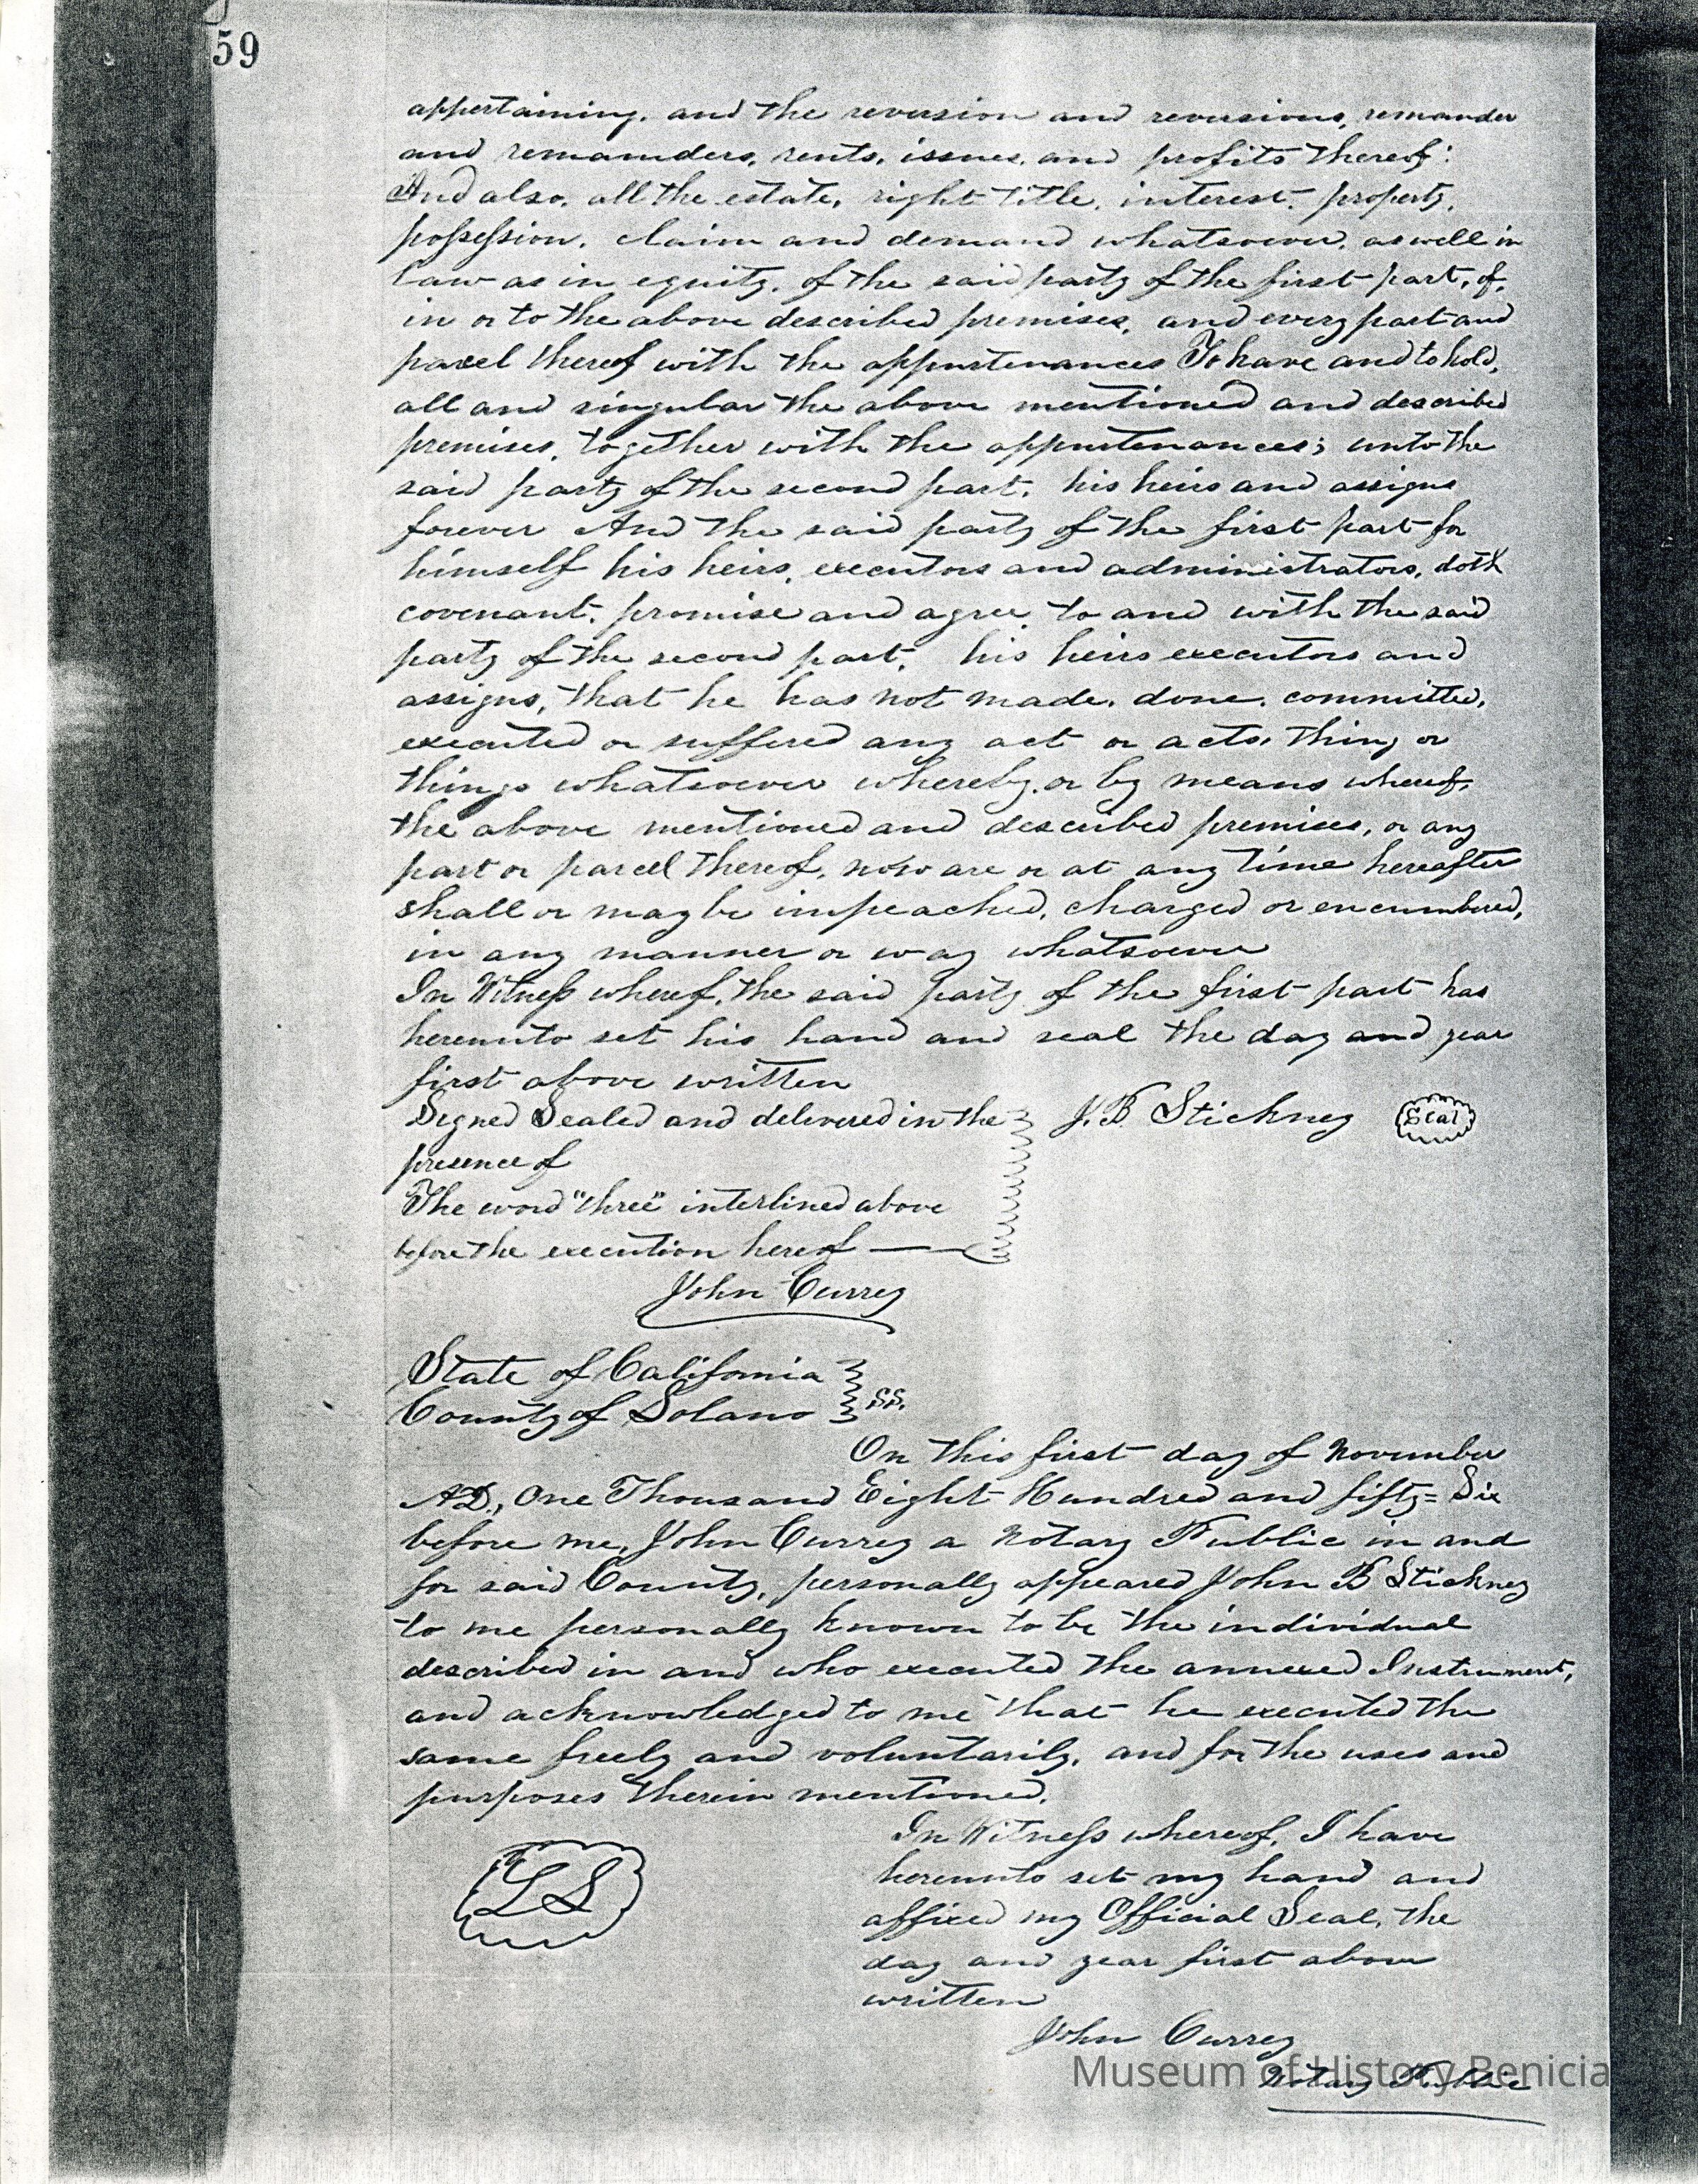 59
appertaining. and the reversion and reversions, remander
and remainders, rents, issues, and profits thereof:
And also, all the estate, right title, interest, property,
possession, claim and demand whatsoever, as well in
law as in equity, of the said party of the first part, of,
in or to the above described premises, and every part and
parcel thereof with the appurtenances To have and to hold,
all and singular the above mentioned and described
premises, together with the appurtenances; unto the
said party of the second part, his heirs and assigns
forever And the said party of the first part for
himself his heirs, executors and administrators, doth
covenant, promise and agree, to and with the said
party of the second part, his heirs executors and
assigns, that he has not made, done, committed,
executed or suffered any act or acts, thing or
things whatsoever whereby, or by means whereof,
the above mentioned and described premises, or any
part or parcell thereof, now are or at any time hereafter
shall or may be impeached, charged or encumbered,
in any manner or way whatsoever
In Witness whereof, the said party of the first part has
hereunto set his hand and seal the day and year
first above written
Signed Sealed and delivered in the J. B Stickney Seal
presence of
The word "three" interlined above
before the execution hereof
John Currey
State of California
County of Solano ss.
On this first day of November
AD., One Thousand Eight Hundred and fifty=Six
before me, John Currey a Notary Public in and
for said County, personally appeared John B Stickney
to me personally known to be the individual
described in and who executed the annexed Instrument,
and acknowledged to me that he executed the
same freely and voluntarily, and for the uses and
purposes therein mentioned.
In Witness whereof, I have
hereunto set my hand and
affixed my Official Seal, the
day and year first above
written
LS
John Currey
Notary Public
Museum of History Benicia